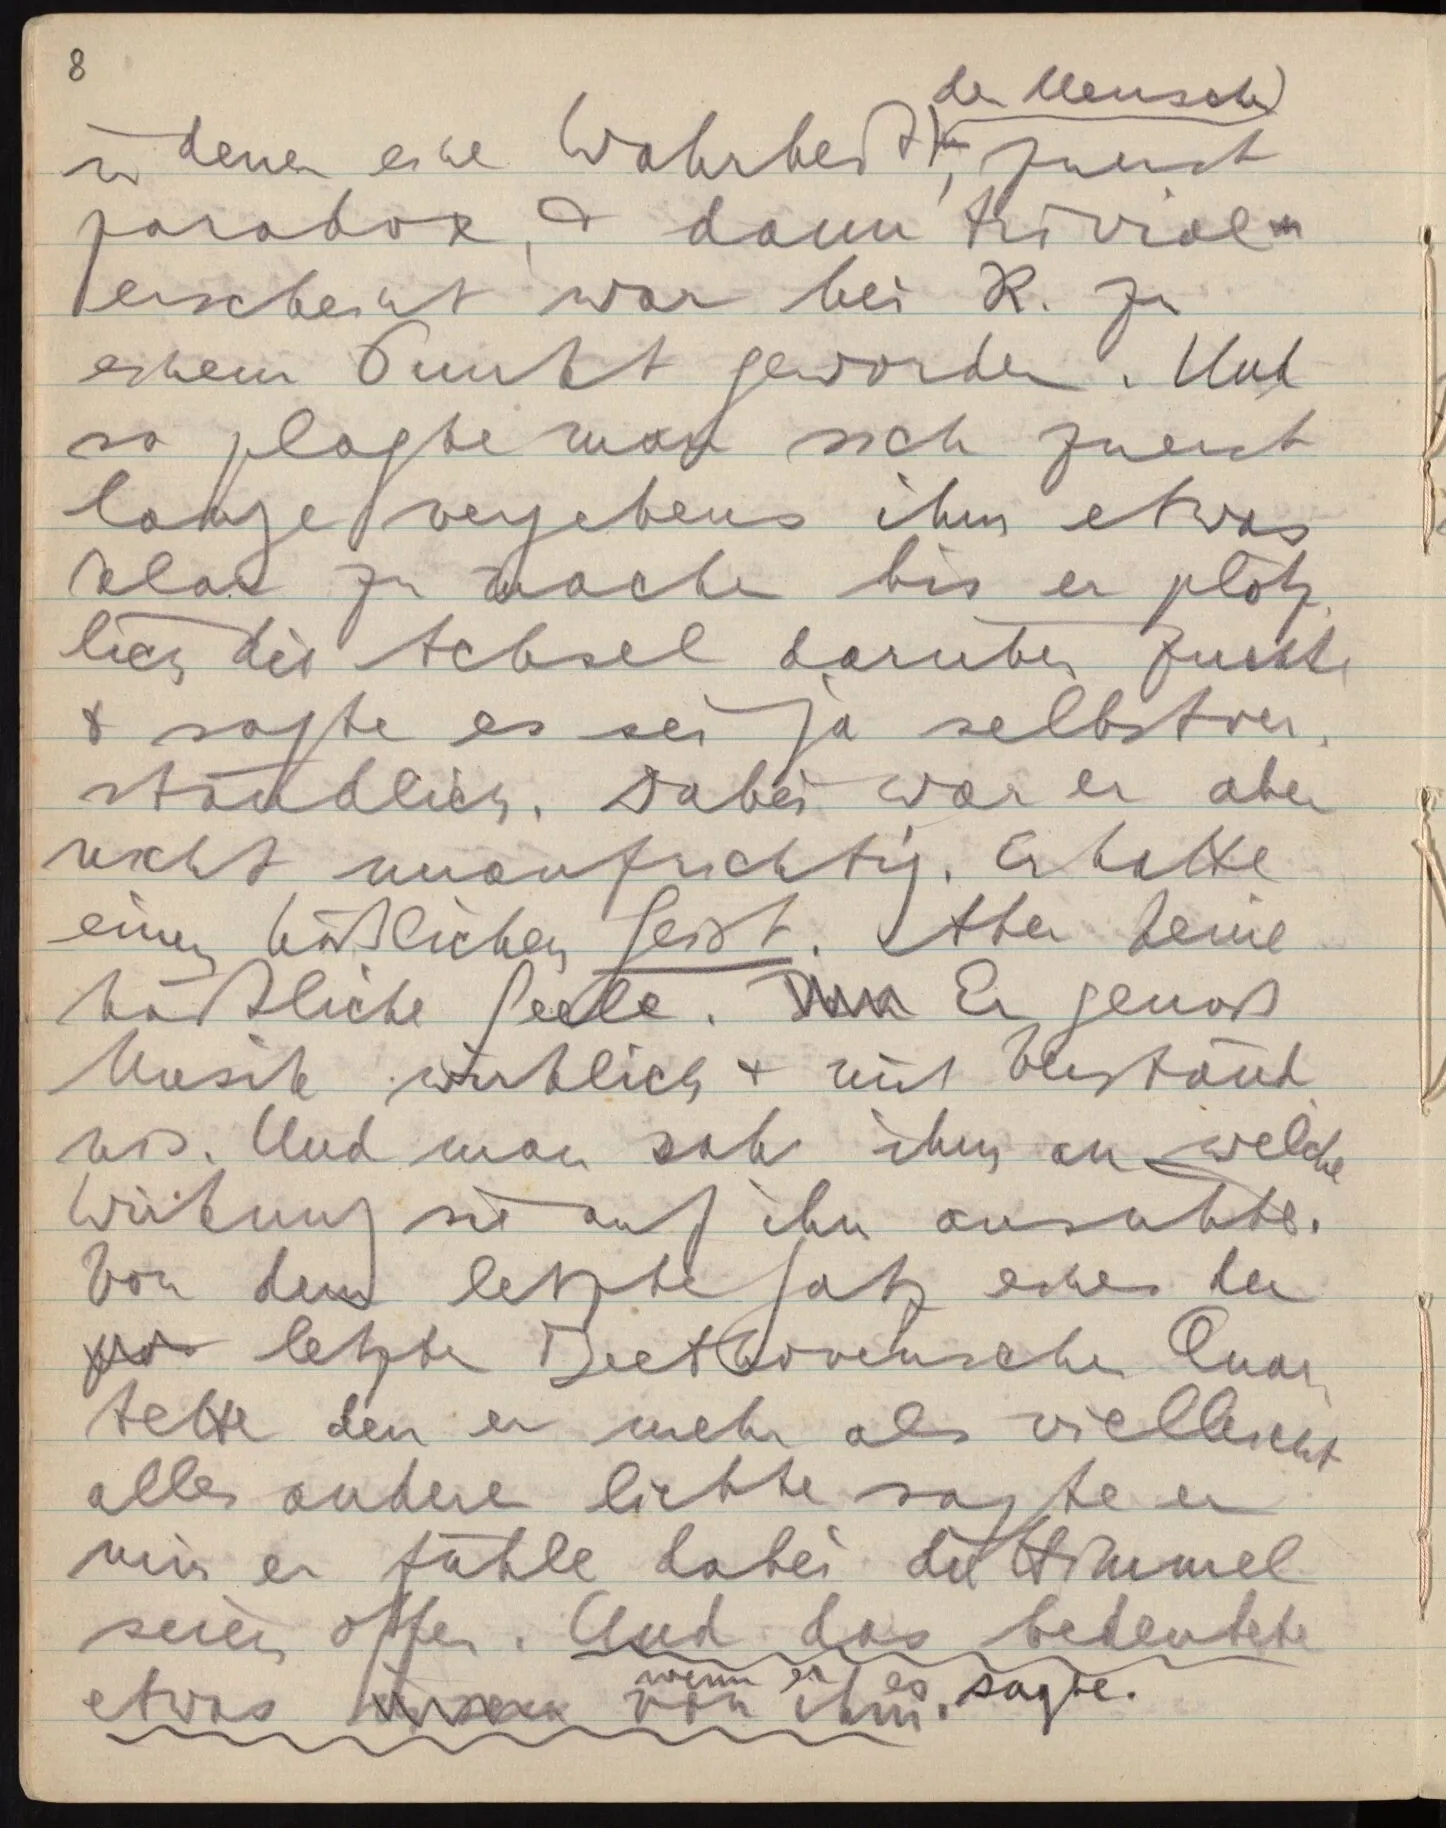 8
den Menschen
in denen eine Wahrheit, zuerst
paradox, & dann trivial
erscheint war bei R. zu
einem Punkt geworden. Und
so plagte man sich zuerst
lange vergebens ihm etwas
klar zu machen bis er plötz-
lich die Achsel darüber zuckte
& sagte es sei ja selbstver-
ständlich. Dabei war er aber
nicht unaufrichtig. Er hatte
einen häßlichen Geist. Aber keine
häßliche Seele. Er genoß
Musik wirklich & mit Verständ
nis. Und man sah ihm an welche
Wirkung sie auf ihn ausübte.
Von dem letzten Satz eines der
letzten Beethovenschen Quar-
tette den er mehr als vielleicht
alles andere liebte sagte er
mir er fühle dabei die Himmel
seien offen. Und das bedeutete
wenn er es sagte.
etwas von ihm.